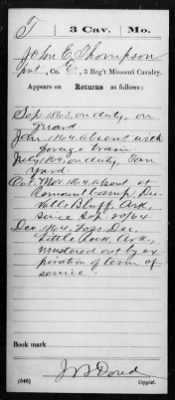 T | 3 Cav. | Mo.
John E. Thompson
Pvt., Co. E, 3 Reg't Missouri Cavalry.
Appears on Returns as follows:
Sep. 1863, on duty, on
guard
Jan. 1864 absent with
forage train.
July 1864 on duty, Tan
Yard.
Oct. Nov. 1864 absent at
Remount Camp, De
Valls Bluff, Ark.,
since Sep. 20/64.
Dec. 1864, Loss Dec.
Little Rock, Ark.,
mustered out by ex
piration of term of
service.
Book mark
(546)
Copyist.